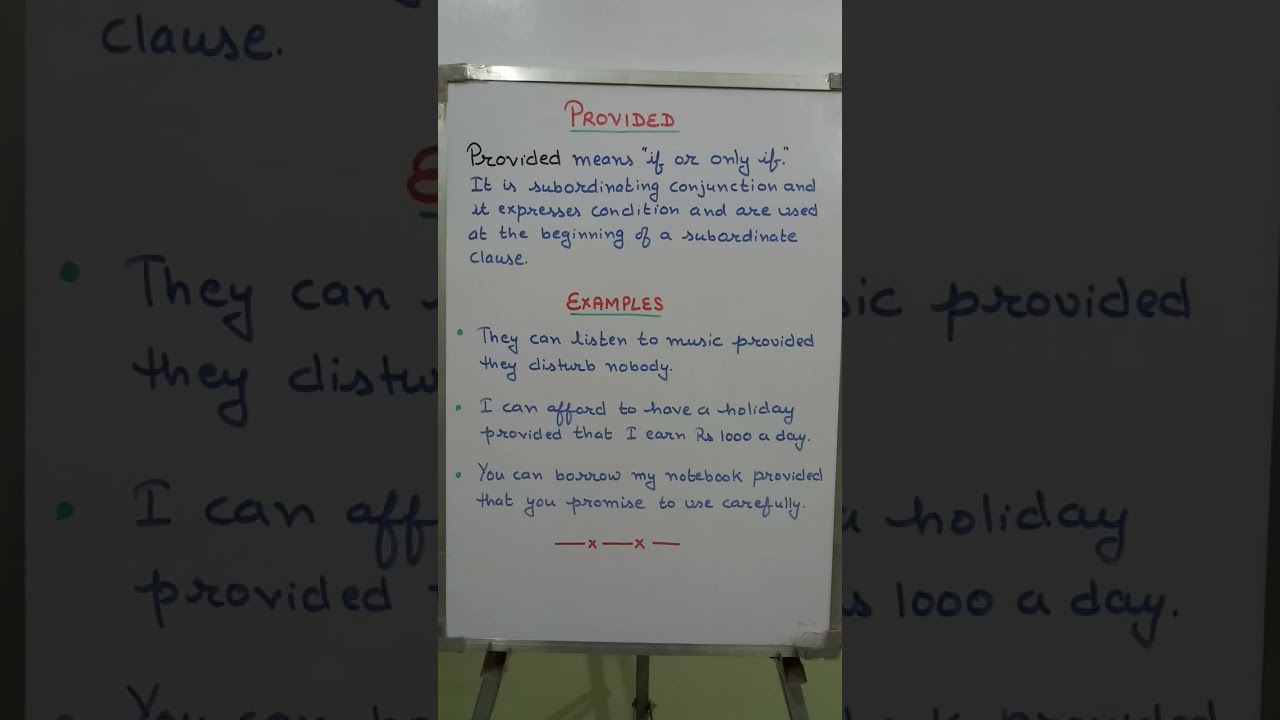 PROVIDED
Provided means "if or only if."
It is subordinating conjunction and
it expresses condition and are used
at the beginning of a subardinate
clause.
EXAMPLES
• They can listen to music provided
they disturb nobody.
• I can afford to have a holiday
provided that I earn Rs 1000 a day.
• You can borrow my notebook provided
that you promise to use carefully.
—x—x—